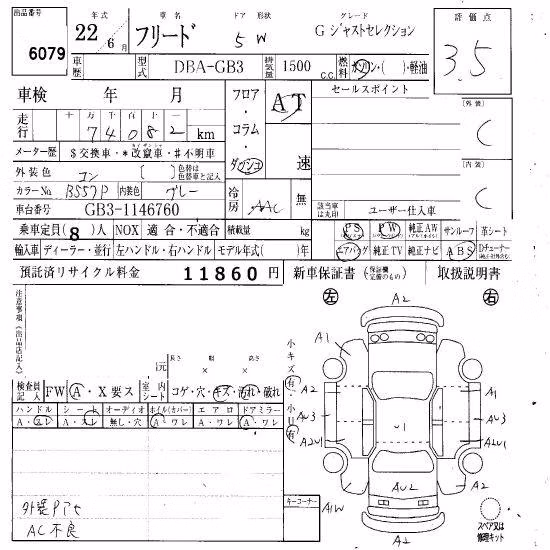 出品番号 年式 車名 ドア 形状 グレード 評価点
6079 22年6月 フリード 5W Gジャストセレクション 3.5
車歴 型式 DBA-GB3 排気量 1500 c.c. 燃料 ガソリン・( )・軽油
車検 年 月 フロア・コラム・ダッシュ AT 速 セールスポイント
走行 十万千百十一
7 4 0 8 2 km
メーター歴 $交換車・*改竄車・#不明車
外装色 コン 色替は色替車と記入 [外装] C
カラーNo. B557P 内装色 グレー 冷房 AAC 無 [内装] C
車台番号 GB3-1146760 該当車は丸印 ユーザー仕入車
乗車定員(8)人 NOX 適合・不適合 積載量 kg PS PW 純正AW サンルーフ 革シート
輸入車 ディーラー・並行 左ハンドル・右ハンドル モデル年式( )年 エアバッグ 純正TV 純正ナビ ABS Dチューナー
預託済リサイクル料金 11860円 新車保証書 (保証欄完備のもの) 取扱説明書
注意事項(出品店記入) 左 右
A2
長さ 幅 高さ
冗 × ×
小キズ(有)・小凹(有)
A1
A2 A1
AU3 U1 AU3
A2U1 A2U1
AU2 A2
A1W A2
検査員記入 FW A・X要ス 室内シート コゲ・穴・キズ・汚れ・破れ
ハンドル シート オーディオ ホイル(カバー) エアロ ドアミラー
A・スレ A・スレ 無し・穴 A・ワレ A・ワレ A・ワレ
外装Pアセ
AC不良
キーコーナー
スペア又は修理キット